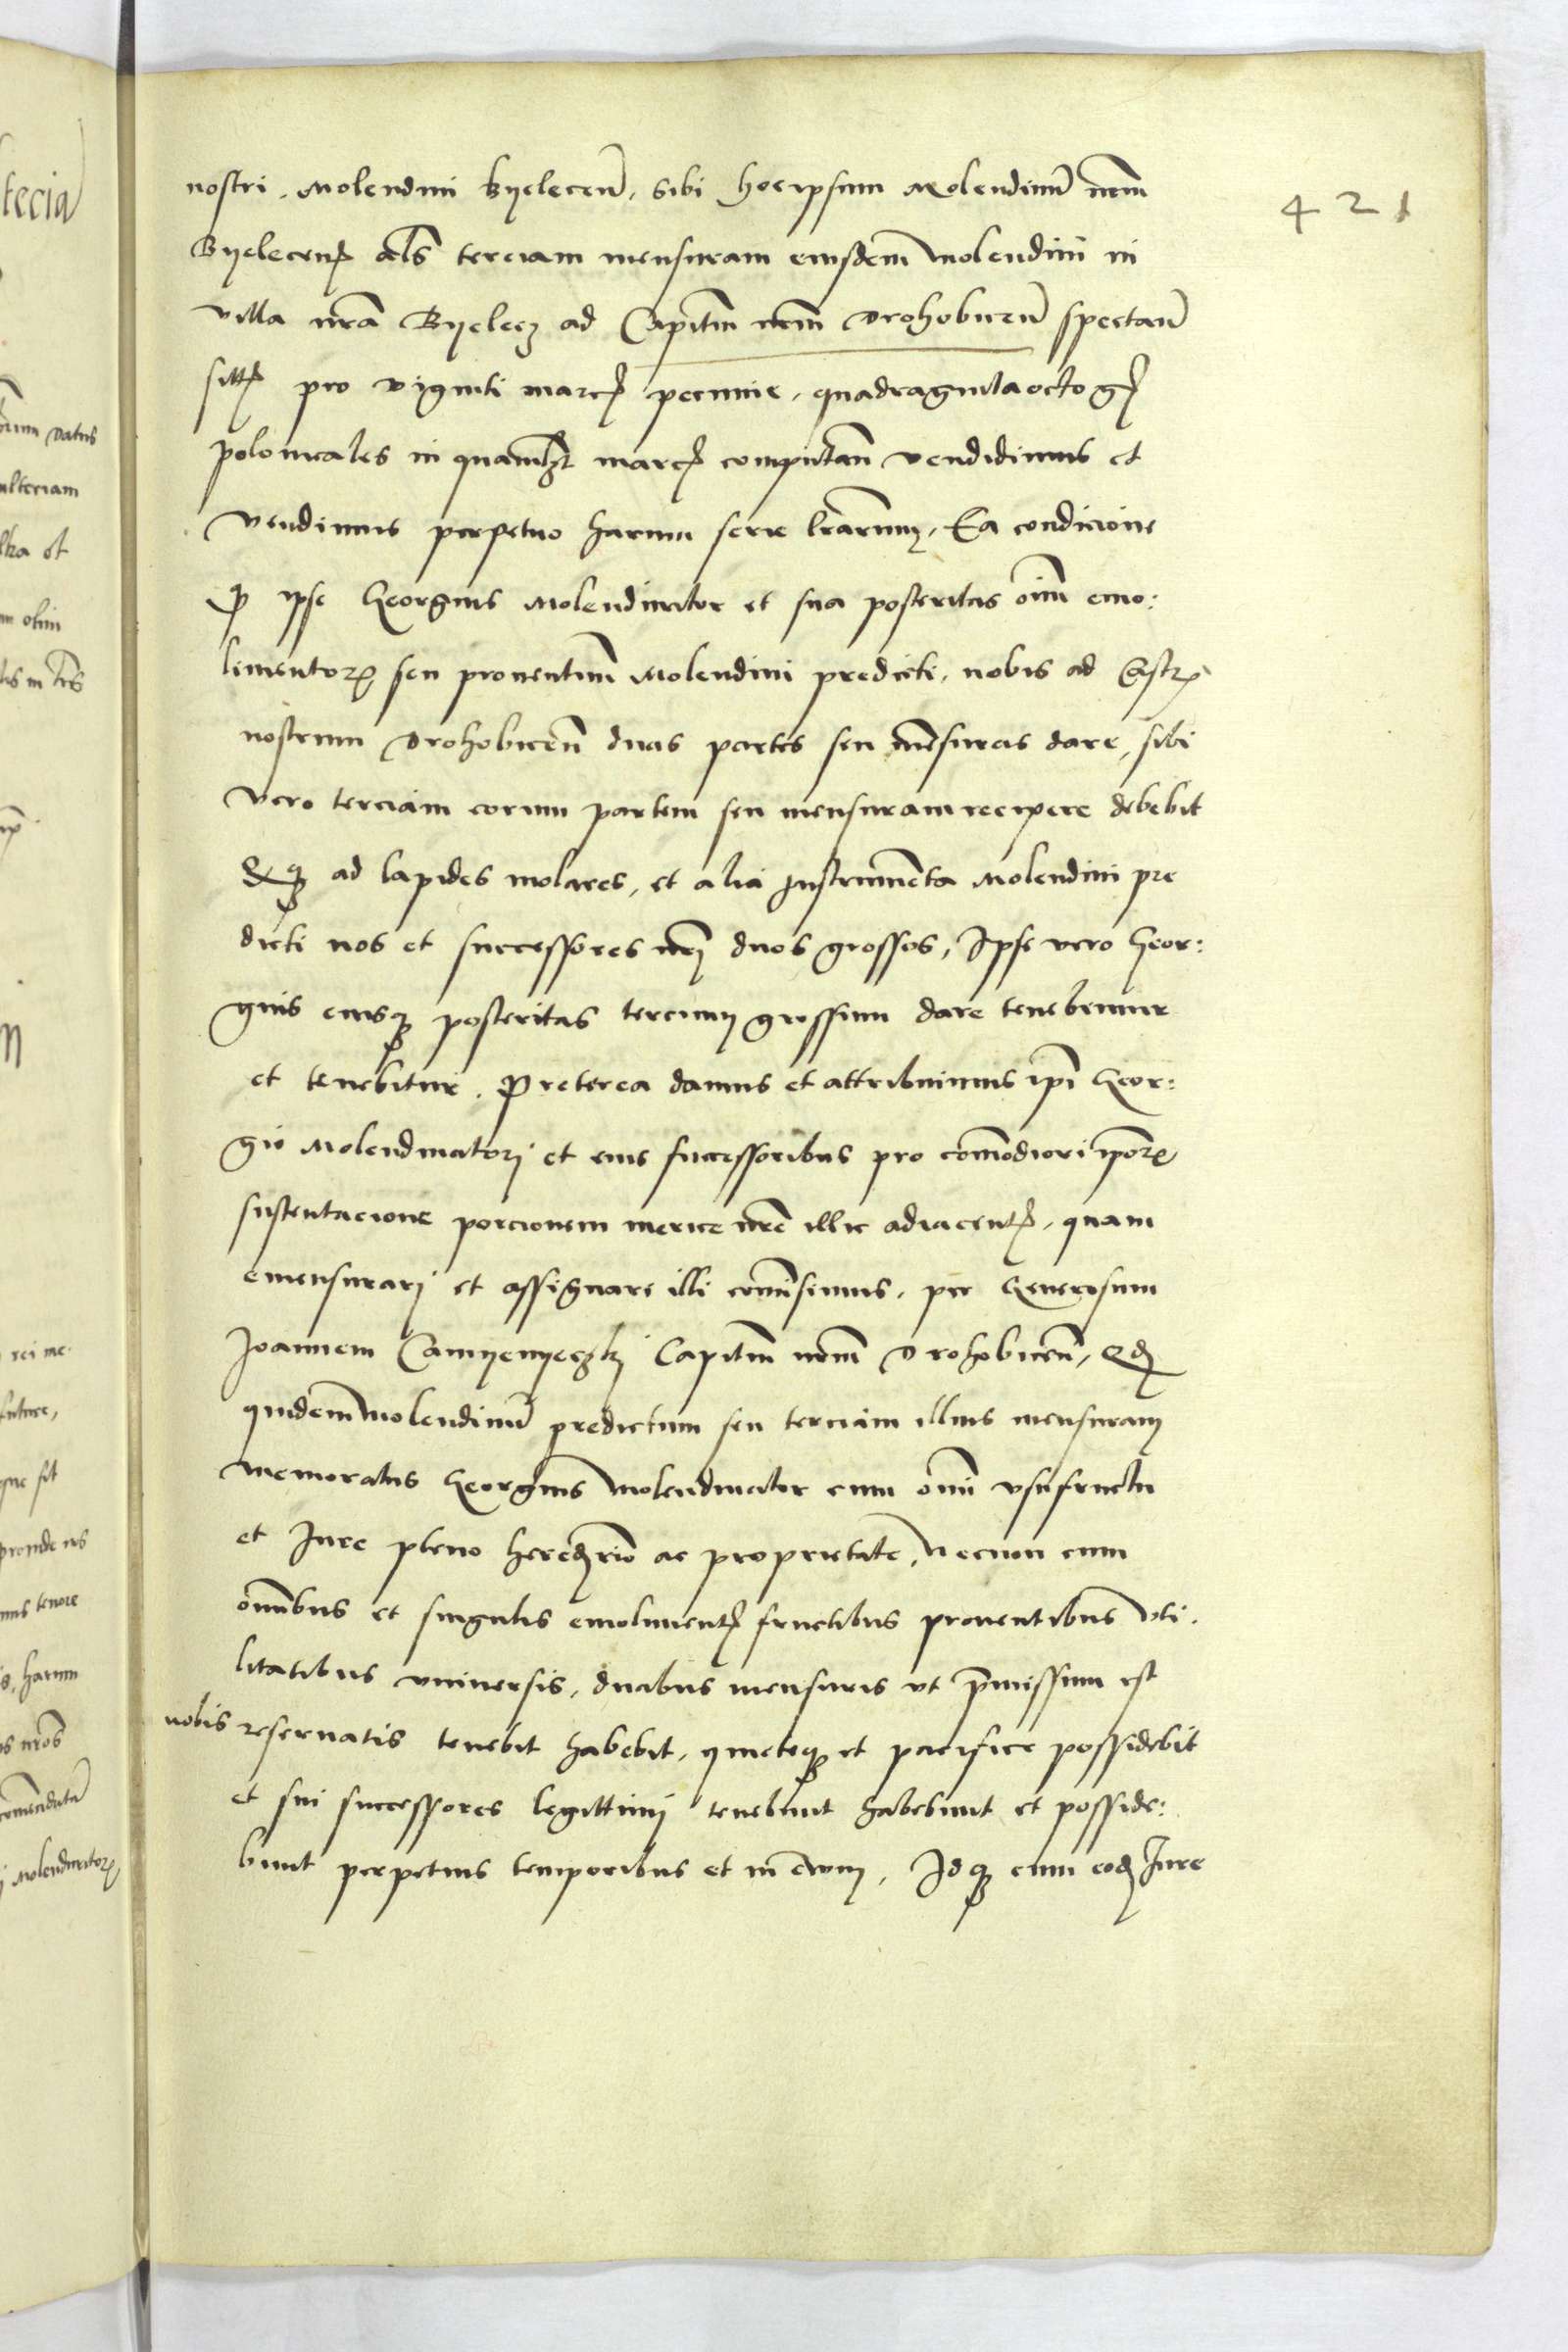 421
nostri. Molendini Byelecen̄. Sibi hocipsum Molendinū nr̄m
Byelecen̄ al̄s terciam mensuram eiusdem̄ molendini in
villa nr̄a Byelecz ad Capitm̄ nr̄m Drohobicen̄ spectan̄
sitt̄ pro viginti marc̄ pecunie, quadragintaocto gr̄
polonicales in quamlꝫt marc̄ computan̄ vendidimus et
vendimus perpetuo harum serie lr̄arum, Ea condicione
ꝙ ipse Georgius Molendinator et sua posteritas oīm emo:
limentoꝝ seu prouentuum̄ Molendini predicti, nobis ad Castr̄
nostrum Drohobicen̄ duas partes seu mēsuras dare, sibi
vero terciam eorum partem seu mensuram recipere debebit
Et ꝙ ad lapides molares, et alia instrumēta Molendini pre
dicti nos et successores nrī duos grossos, Ipse vero Geor:
gius eiusqꝫ posteritas tercium grossum dare tenebimur
et tenebitur. Preterea damus et attribuimus ip̄i Geor:
gio Molendinatori et eius successoribus pro com̄odiori ip̄oꝝ
sustentacione porcionem merice nr̄e illic adiacent̄, quam
emensurari et assignare illi com̄isimus, per Generosum
Joannem Camyenyeczky Capitm̄ nr̄m Drohobicen̄, Qd̄
quidem̄ molendinū predictum seu terciam illius mensuram
memoratus Georgius molendinator cum om̄i vsufructu
et Jure pleno hered̄rio ac proprietate, Necnon cum
om̄ibus et singulis emoliment̄ fructibus prouentibus vti.
litatibus vniuersis, duabus mensuris vt p̄missum est
nobis reseruatis tenebit habebit, quieteqꝫ et pacifice possidebit
et sui successores legittimi tenebunt habebunt et posside:
bunt perpetuis temporibus et in ewm, Idqꝫ cum eod̄ Jure